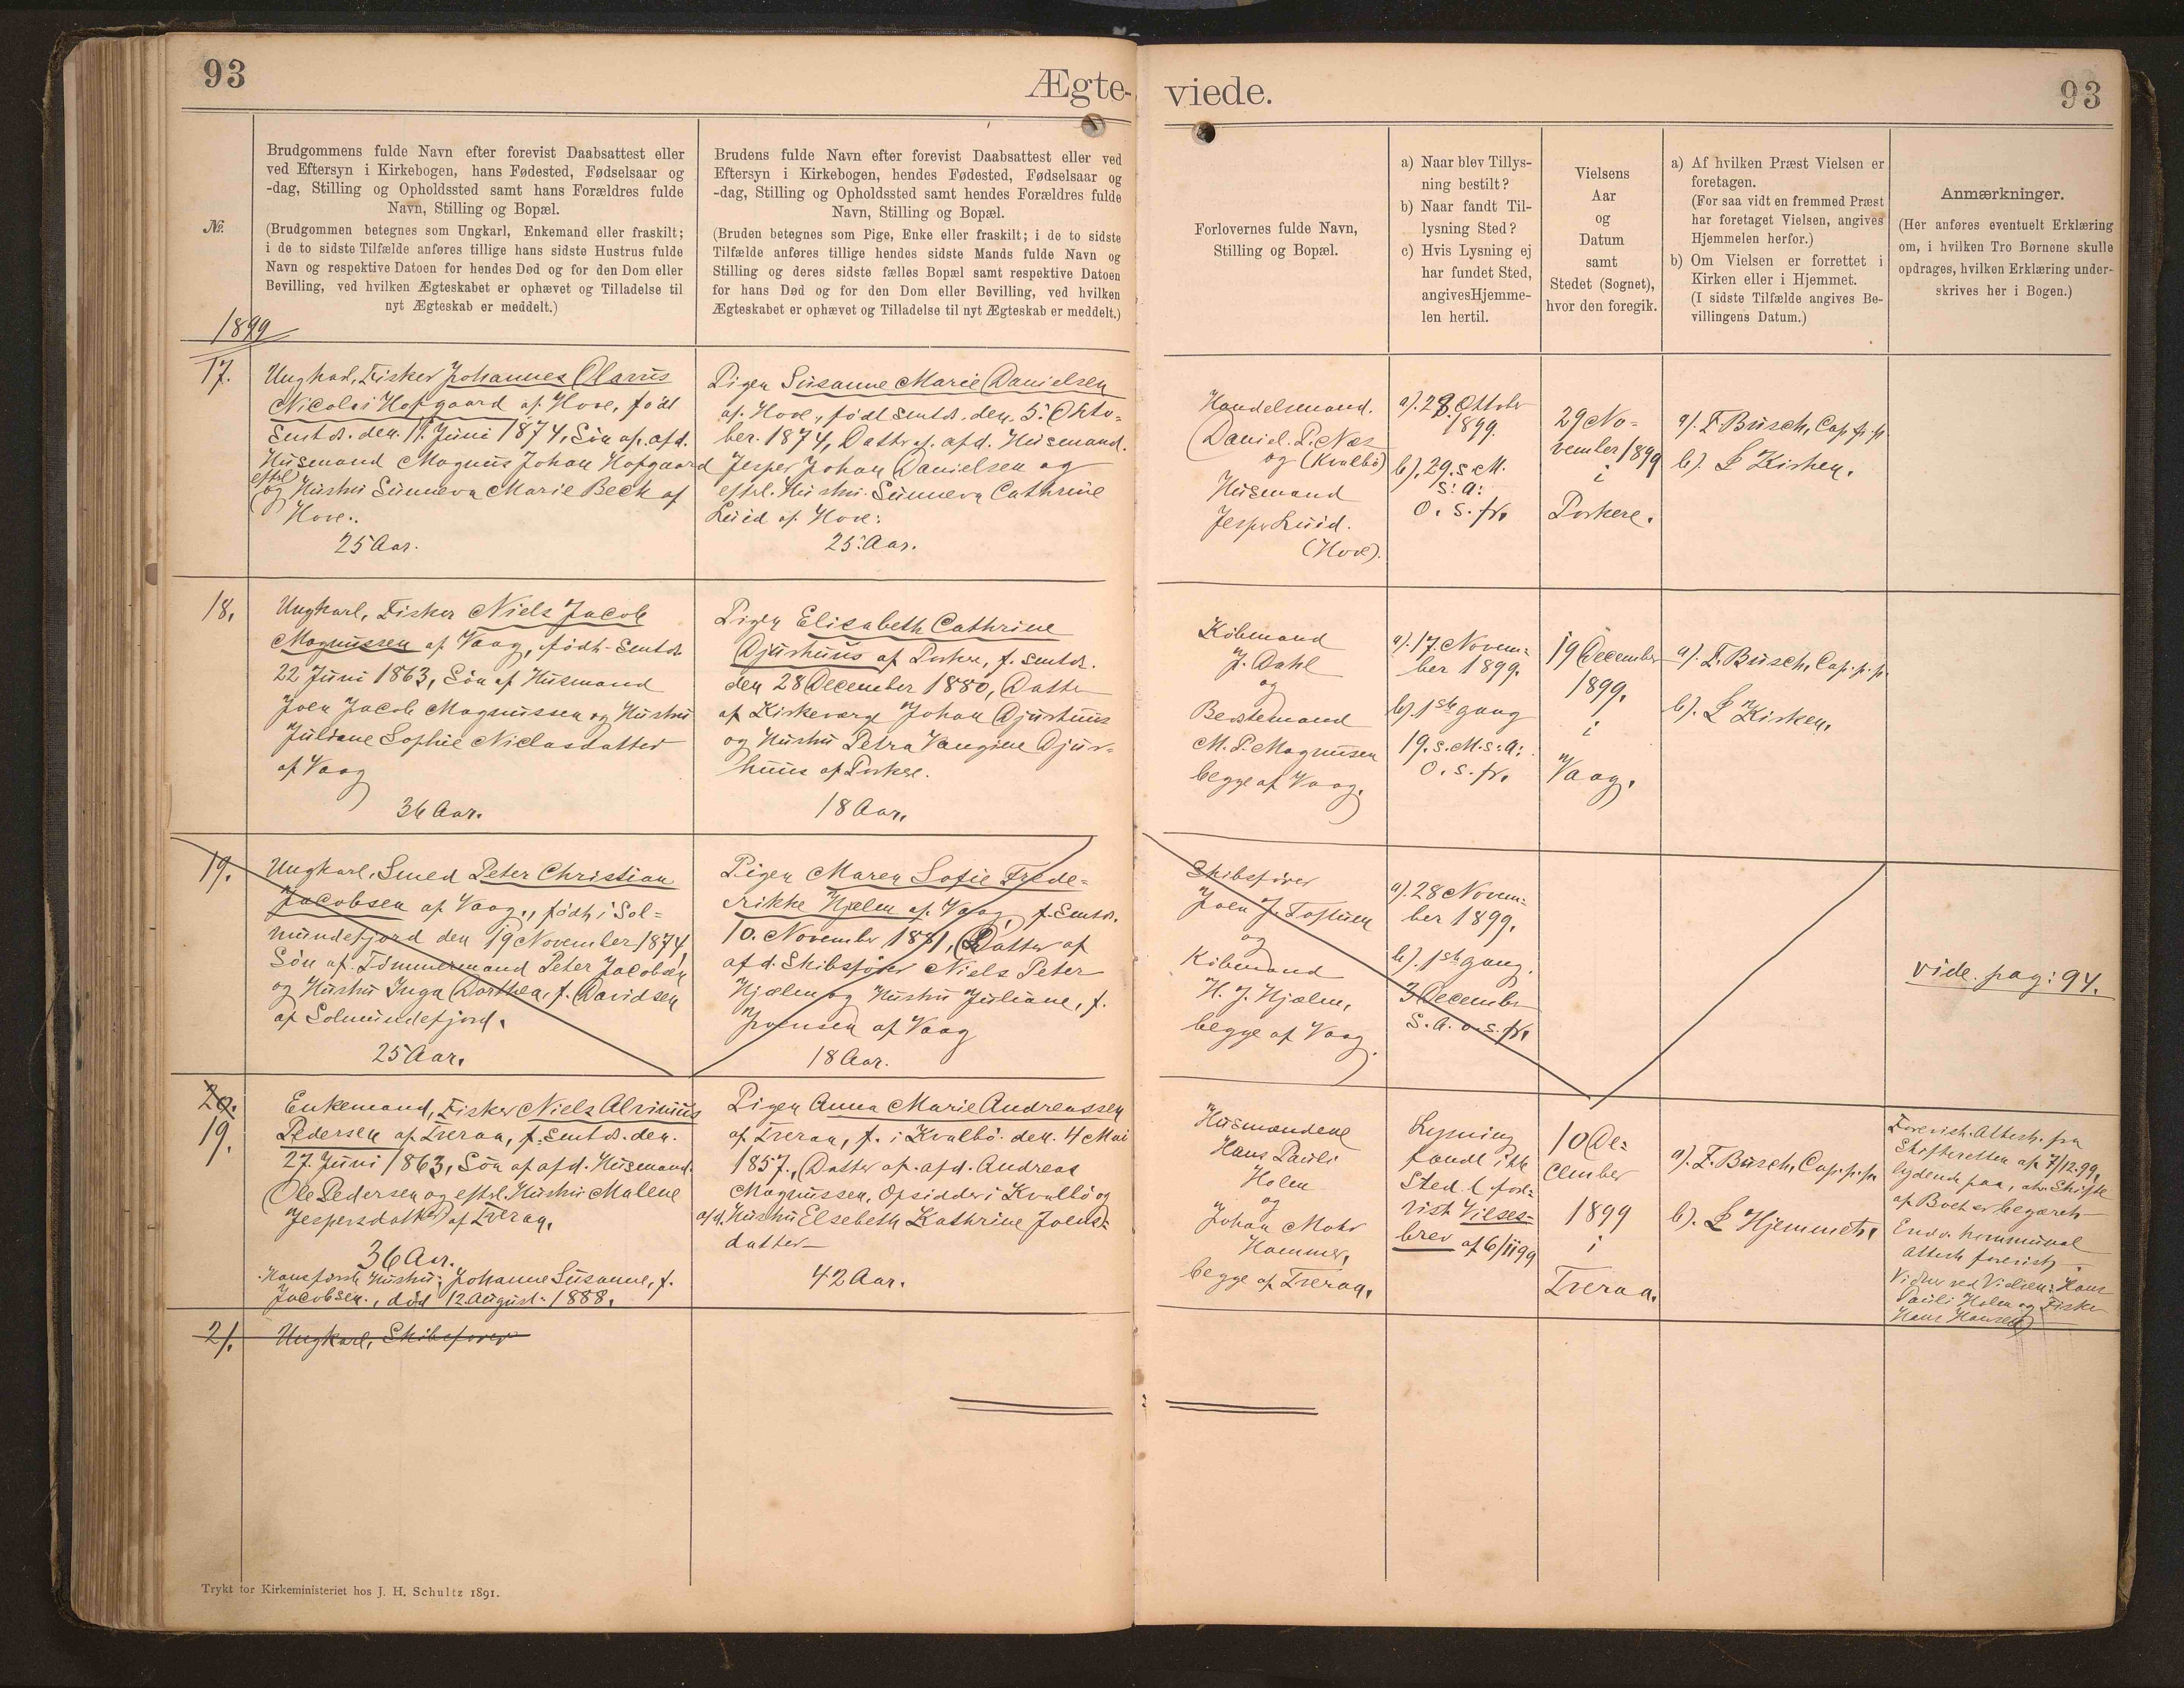 93
Ægte-
Brudgommens fulde Navn efter forevist Daabsattest eller
ved Eftersyn i Kirkebogen, hans Fødested, Fødselsaar og
-dag, Stilling og Opholdssted samt hans Forældres fulde
Navn, Stilling og Bopæl.
(Brudgommen betegnes som Ungkarl, Enkemand eller fraskilt;
i de to sidste Tilfælde anføres tillige hans sidste Hustrus fulde
Navn og respektive Datoen for hendes Død og for den Dom eller
Bevilling, ved hvilken Ægteskabet er ophævet og Tilladelse til
nyt Ægteskab er meddelt.)
Brudens fulde Navn efter forevist Daabsattest eller ved
Eftersyn i Kirkebogen, hendes Fødested, Fødselsaar og
-dag, Stilling og Opholdssted samt hendes Forældres fulde
Navn, Stilling og Bopæl.
(Bruden betegnes som Pige, Enke eller fraskilt; i de to sidste
Tilfælde anføres tillige hendes sidste Mands fulde Navn og
Stilling og deres sidste fælles Bopæl samt respektive Datoen
for hans Død og for den Dom eller Bevilling, ved hvilken
Ægteskabet er ophævet og Tilladelse til nyt Ægteskab er meddelt.)
No.
1899
17.
Ungkarl, Fisker Johannes Olarius
Nicolai Hofgaard af Hove, født
Smst. den 11. Juni 1874, Søn af afd.
Husmand Magnus Johan Hofgaard
og eftrl. Hustru Sunneva Marie Beck af
Hove.
25 Aar.
Pigen Susanne Marie Danielsen
af Hove, født smst. den 5. Okto-
ber 1874, Datter af afd. Husmand
Jesper Johan Danielsen og
eftrl. Hustru Sunneva Cathrine
Luid af Hove.
25 Aar.
18.
Ungkarl, Fisker Niels Jacob
Magnussen af Vaag, født Smst.
22 Juni 1863, Søn af Husmand
Joen Jacob Magnussen og Hustru
Juliane Sophie Niclasdatter
af Vaag
36 Aar.
Pigen Elisabeth Cathrine
Djurhuus af Porkere, f. smst.
den 28 December 1880, Datter
af Kirkeværge Johan Djurhuus
og Hustru Petra Vangine Djur-
huus af Porkere.
18 Aar.
19.
Ungkarl, Smed Peter Christian
Jacobsen af Vaag, født i Sol-
mundefjord den 19 November 1874,
Søn af Tømmermand Peter Jacobsen
og Hustru Inga Dorthea, f. Davidsen
af Solmundefjord.
25 Aar.
Pigen Maren Sofie Frede-
rikke Hjælm af Vaag, f. Smst.
10. November 1881, Datter af
afd. Skibsfører Niels Peter
Hjælm og Hustru Juliane, f.
Joensen af Vaag
18 Aar.
20.
19.
Enkemand, Fisker Niels Alvinius
Pedersen af Treraa, f. Smst. den
27. Juni 1863, Søn af afd. Husmand
Ole Pedersen og eftrl. Hustru Malene
Jespersdatter af Treraa.
36 Aar.
Hans første Hustru: Johanne Susanne, f.
Jacobsen, død 12 August 1888.
Pigen Anna Marie Andreassen
af Treraa, f. i Kvalbø den 4 Mai
1857, Datter af afd. Andreas
Magnussen, Opsidder i Kvalbø og
afd. Hustru Elsebeth Kathrine Joens-
datter
42 Aar.
21.
Ungkarl, Skibsfører
Trykt for Kirkeministeriet hos J. H. Schultz 1891.
viede.
93
Forlovernes fulde Navn,
Stilling og Bopæl.
a) Naar blev Tillys-
ning bestilt?
b) Naar fandt Til-
lysning Sted?
c) Hvis Lysning ej
har fundet Sted,
angives Hjemme-
len hertil.
Vielsens
Aar
og
Datum
samt
Stedet (Sognet),
hvor den foregik.
a) Af hvilken Præst Vielsen er
foretagen.
(For saa vidt en fremmed Præst
har foretaget Vielsen, angives
Hjemmelen herfor.)
b) Om Vielsen er forrettet i
Kirken eller i Hjemmet.
(I sidste Tilfælde angives Be-
villingens Datum.)
Anmærkninger.
(Her anføres eventuelt Erklæring
om, i hvilken Tro Børnene skulle
opdrages, hvilken Erklæring under-
skrives her i Bogen.)
Handelsmand.
Daniel P. Næs
og (Kvalbø)
Husmand
Jesper Luid.
(Hove).
a). 28. Oktober
1899.
b). 29. s. M.
s: A:
o. s. fr.
29 No-
vember 1899
i
Porkere.
a). F. Busch, Cap. p. p.
b). I Kirken.
Købmand
J. Dahl
og
Bestemand
M. P. Magnussen
begge af Vaag.
a). 17. Novem-
ber 1899.
b). 1ste gang
19. s. M. s. A:
o. s. fr.
19 December
1899.
i
Vaag.
a). F. Busch, Cap. p. p.
b). I Kirken.
Skibsfører
Joen J. Toftum
og
Købmand
H. J. Hjælm,
begge af Vaag.
a). 28 Novem-
ber 1899.
b). 1ste gang.
3 December
S. A. o. s. fr.
vide. pag: 94.
Husmændene
Hans Pauli
Holm
og
Johan Mohr
Hammer,
begge af Treraa.
Lysning
fandt ikke
Sted. fore-
vist Vielses-
brev af 6/11 99
10 De-
cember
1899
i
Treraa.
a). F. Busch, Cap. p. p.
b). I Hjemmet.
Forevist Attest fra
Skifteretten af 7/12.99,
lydende paa, at Skifte
af Boet er begæret
Endv. kommunal
Attest forevist.
Vidner ved Vielsen: Hans
Pauli Holm og Fisker
Hans Hansen